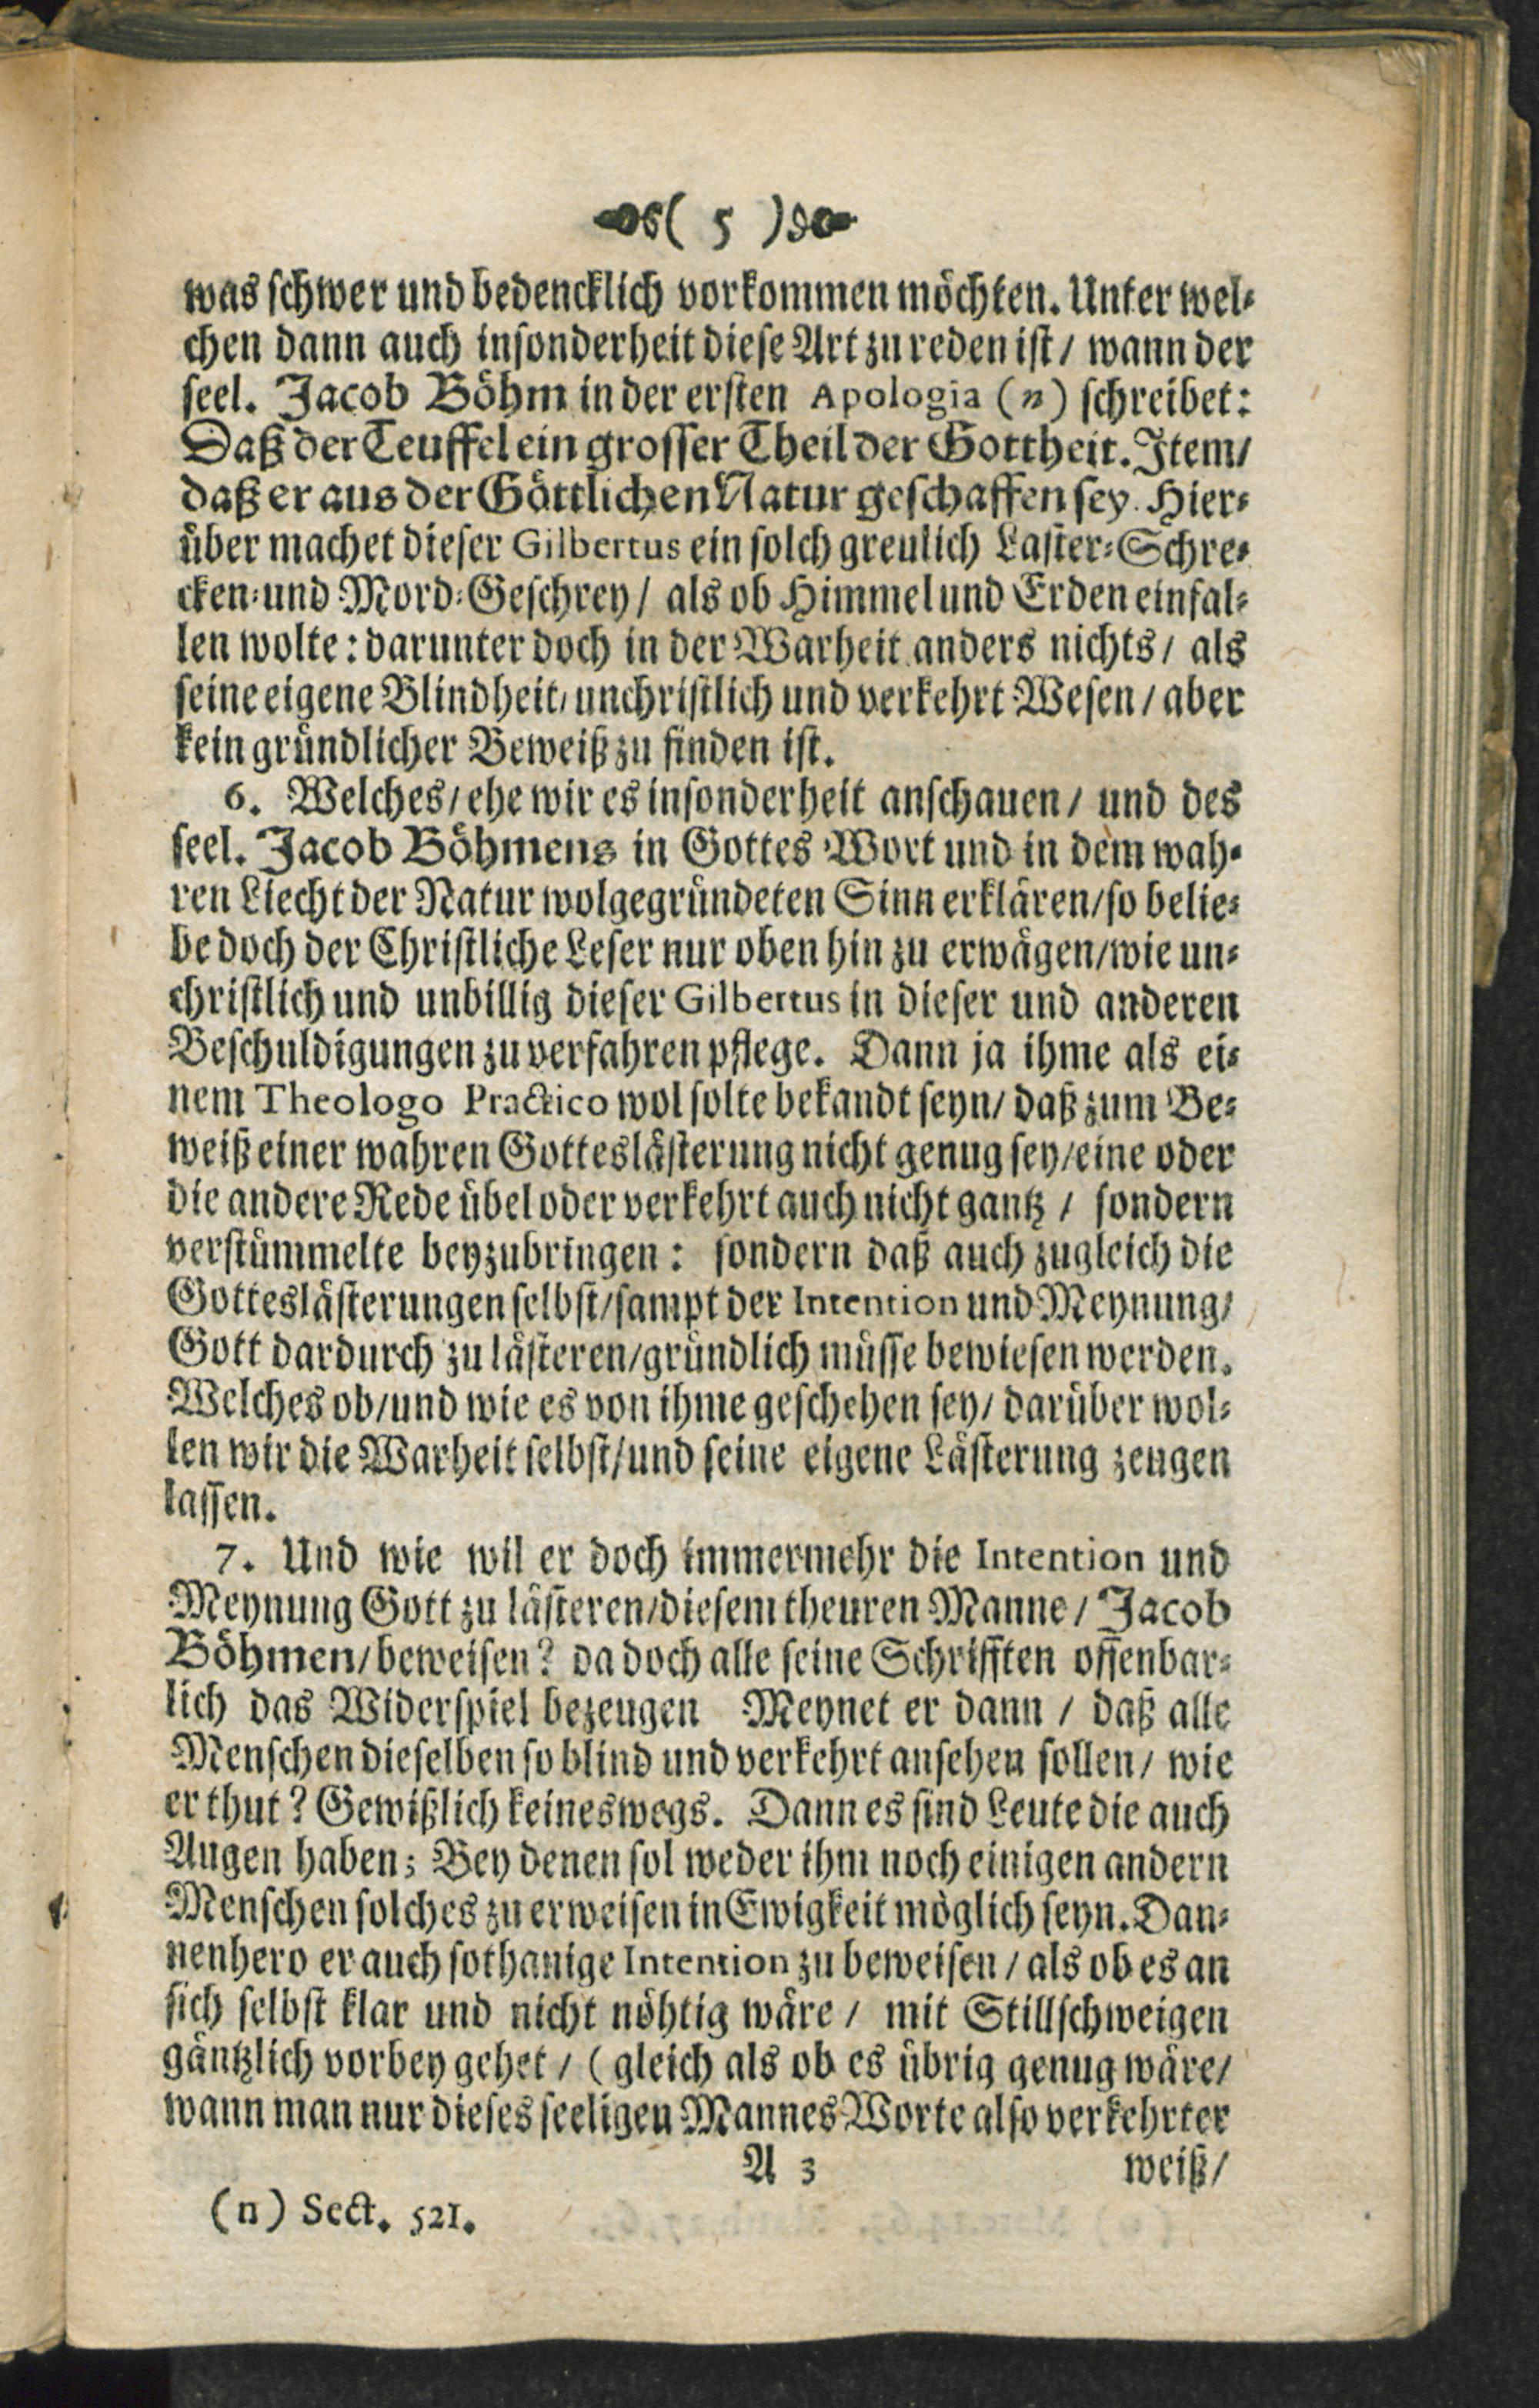 ( 5 )
was schwer und bedencklich vorkommen möchten. Unter wel-
chen dann auch insonderheit diese Art zu reden ist / wann der
seel. Jacob Böhm in der ersten Apologia (n) schreibet:
Daß der Teuffel ein grosser Theil der Gottheit. Item/
daß er aus der Göttlichen Natur geschaffen sey. Hier-
über machet dieser Gilbertus ein solch greulich Laster-Schre-
cken-und Mord-Geschrey / als ob Himmel und Erden einfal-
len wolte: darunter doch in der Warheit anders nichts / als
seine eigene Blindheit/ unchristlich und verkehrt Wesen / aber
kein gründlicher Beweiß zu finden ist.
6. Welches/ ehe wir es insonderheit anschauen / und des
seel. Jacob Böhmens in Gottes Wort und in dem wah-
ren Liecht der Natur wolgegründeten Sinn erklären/ so belie-
be doch der Christliche Leser nur oben hin zu erwägen/ wie un-
christlich und unbillig dieser Gilbertus in dieser und anderen
Beschuldigungen zu verfahren pflege. Dann ja ihme als ei-
nem Theologo Practico wol solte bekandt seyn/ daß zum Be-
weiß einer wahren Gotteslästerung nicht genug sey/ eine oder
die andere Rede übel oder verkehrt auch nicht gantz / sondern
verstümmelte beyzubringen: sondern daß auch zugleich die
Gotteslästerungen selbst/ sampt der Intention und Meynung/
Gott dardurch zu lästeren/ gründlich müsse bewiesen werden.
Welches ob/ und wie es von ihme geschehen sey/ darüber wol-
len wir die Warheit selbst/ und seine eigene Lästerung zeugen
lassen.
7. Und wie wil er doch immermehr die Intention und
Meynung Gott zu lästeren/ diesem theuren Manne / Jacob
Böhmen/ beweisen? da doch alle seine Schrifften offenbar-
lich das Widerspiel bezeugen Meynet er dann / daß alle
Menschen dieselben so blind und verkehrt ansehen sollen/ wie
er thut? Gewißlich keineswegs. Dann es sind Leute die auch
Augen haben; Bey denen sol weder ihm noch einigen andern
Menschen solches zu erweisen in Ewigkeit möglich seyn. Dan-
nenhero er auch sothanige Intention zu beweisen / als ob es an
sich selbst klar und nicht nöhtig wäre / mit Stillschweigen
gäntzlich vorbey gehet / ( gleich als ob es übrig genug wäre/
wann man nur dieses seeligen Mannes Worte also verkehrter
A 3 weiß/
(n) Sect. 521.